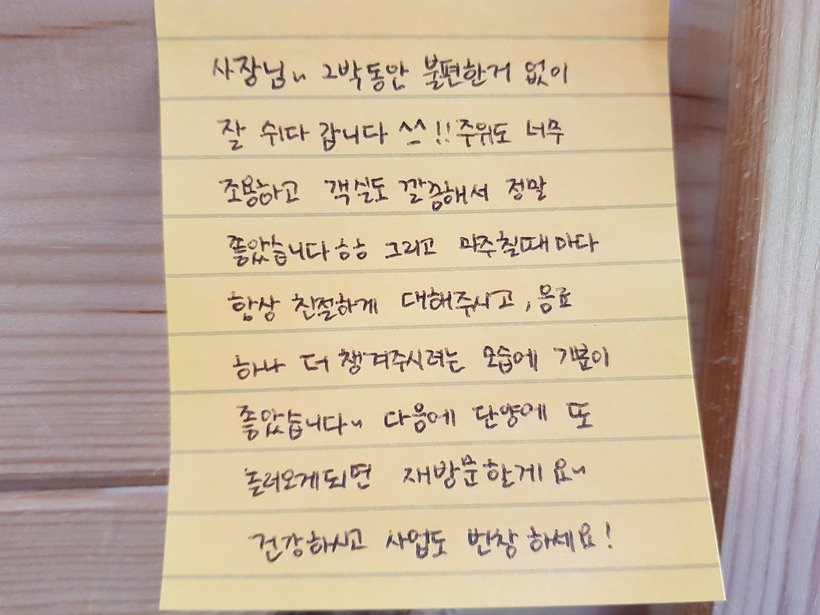 사장님~ 2박동안 불편한거 없이
잘 쉬다 갑니다 ^^!! 주위도 너무
조용하고 객실도 깔끔해서 정말
좋았습니다ㅎㅎ 그리고 마주칠때마다
항상 친절하게 대해주시고, 음료
하나 더 챙겨주시려는 모습에 기분이
좋았습니다~ 다음에 단양에 또
놀러오게되면 재방문할게요~
건강하시고 사업도 번창하세요!